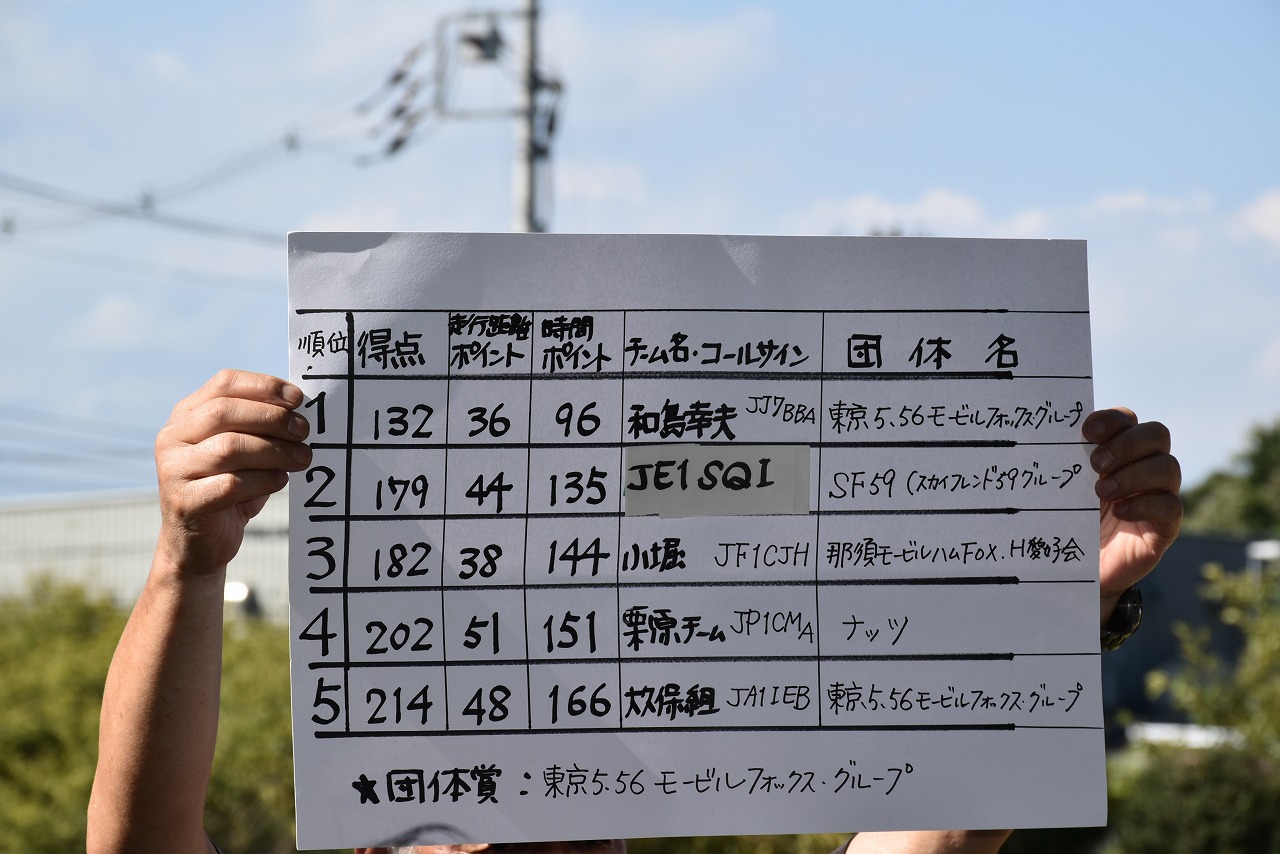 順位 得点 走行距離ポイント 時間ポイント チーム名・コールサイン 団体名
1 132 36 96 和島幸夫 JJ7BBA 東京5.56モービルフォックスグループ
2 179 44 135 JE1SQI SF59(スカイフレンド59グループ
3 182 38 144 小堀 JF1CJH 那須モービルハムFOX.H愛好会
4 202 51 151 栗原チーム JP1CMA ナッツ
5 214 48 166 保組 JA1IEB 東京5.56モービルフォックス・グループ
★団体賞:東京5.56モービルフォックス・グループ